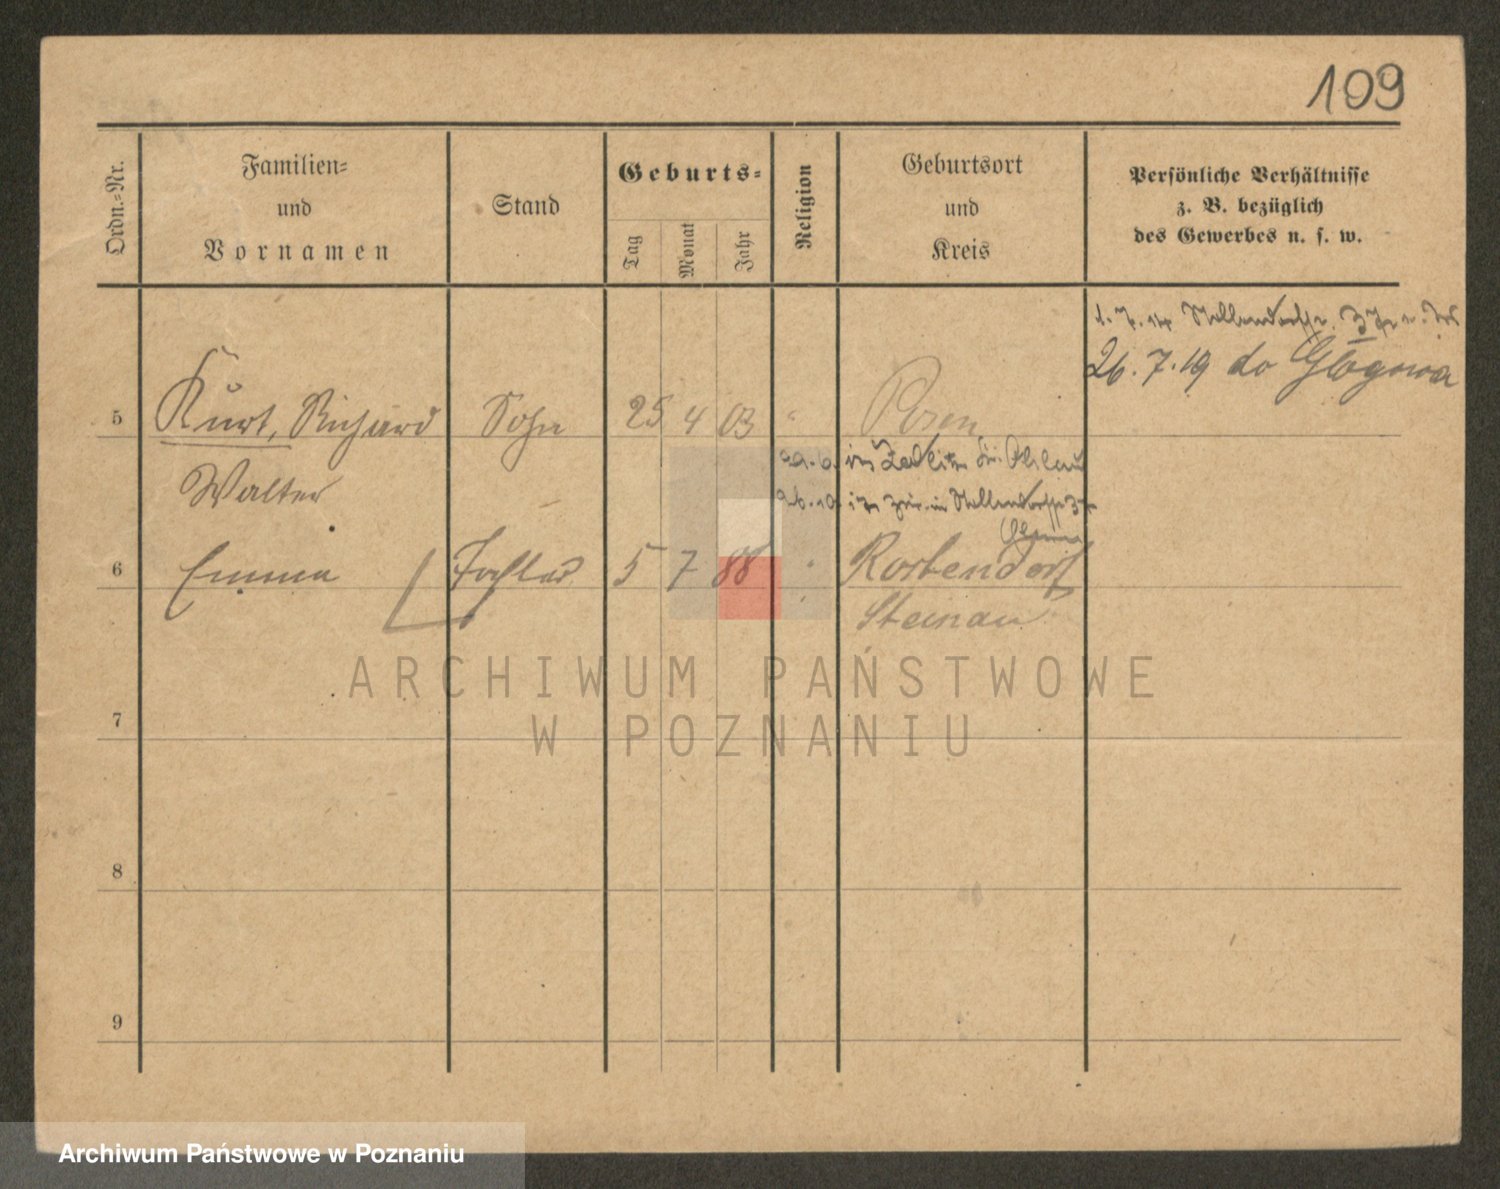 109
Ordn.-Nr.
Familien-
und
Vornamen
Stand
Geburts-
Tag
Monat
Jahr
Religion
Geburtsort
und
Kreis
Persönliche Verhältnisse
z. B. bezüglich
des Gewerbes u. s. w.
26. 7. 19 do Głogowa
5 Kurt, Richard Sohn 25 4 03 " Posen
Walter
6 Emma Tochter 5 7 88 "
Steinau
7
8
9
ARCHIWUM PAŃSTWOWE
W POZNANIU
Archiwum Państwowe w Poznaniu